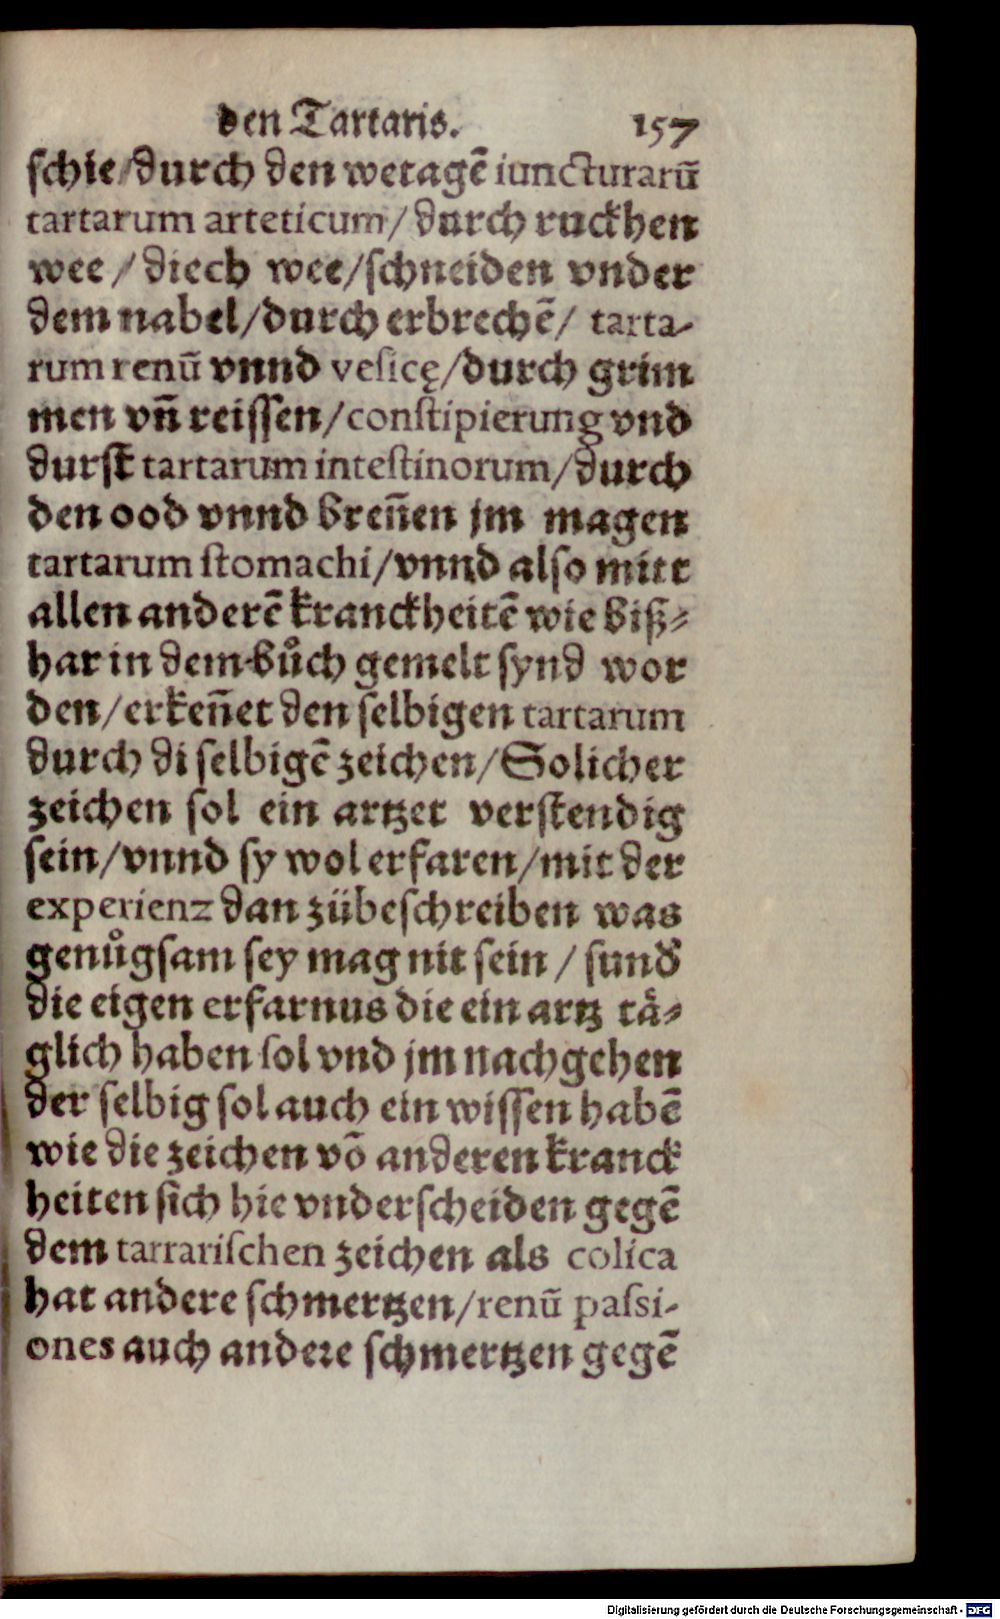 den Tartaris. 157
schie/durch den wetagē iuncturarū
tartarum arteticum/durch ruckhen
wee/diech wee/schneiden vnder
dem nabel/durch erbrechē/ tarta-
rum renū vnnd vesicę/durch grim
men vñ reissen/constipierung vnd
durst tartarum intestinorum/durch
den ood vnnd breñen jm magen
tartarum stomachi/vnnd also mitt
allen anderē kranckheitē wie biß⸗
har in dem bůch gemelt synd wor
den/erkeñet den selbigen tartarum
durch di selbigē zeichen/Solicher
zeichen sol ein artzet verstendig
sein/vnnd sy wol erfaren/mit der
experienz dan zübeschreiben was
genůgsam sey mag nit sein/ sund
die eigen erfarnus die ein artz tä⸗
glich haben sol vnd jm nachgehen
der selbig sol auch ein wissen habē
wie die zeichen vō anderen kranck
heiten sich hie vnderscheiden gegē
dem tarrarischen zeichen als colica
hat andere schmertzen/renū passi-
ones auch andere schmertzen gegē
Digitalisierung gefördert durch die Deutsche Forschungsgemeinschaft - DFG